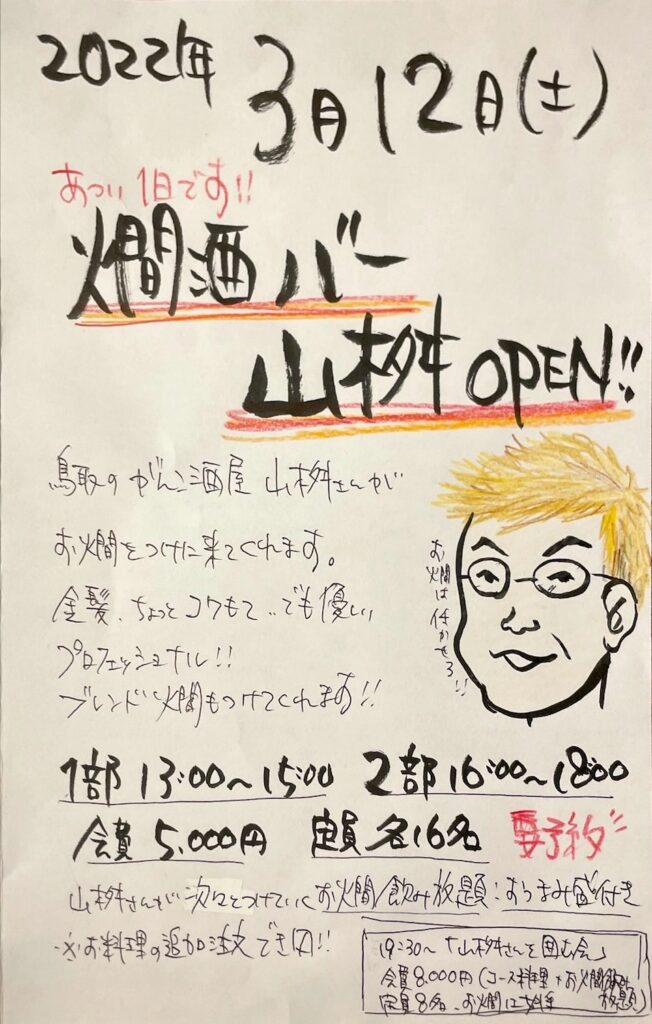 2022年
3月12日(土)
あつい1日です!!
燗酒バー
山枡 OPEN!!
鳥取の がんこ酒屋 山枡さんが
お燗をつけに来てくれます。
金髪、ちょっとコワもて..でも優しい
プロフェッショナル!!
ブレンド燗もつけてくれます!!
お燗は任かせろ!!
1部 13:00〜15:00 2部 16:00〜18:00
会費 5,000円 定員 各16名 要予約
山枡さんが 次々とつけていく お燗飲み放題:おつまみ盛付き
※お料理の追加注文できます!!
19:30〜「山枡さんを囲む会」
会費8,000円(コース料理+お燗飲み放題)
定員8名